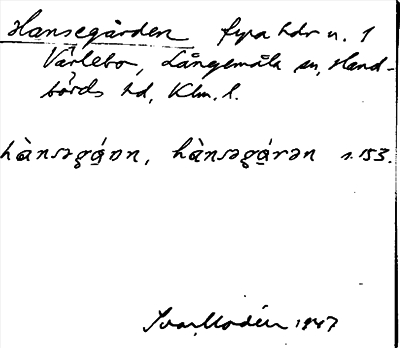 Hansegården fyra hdr n. 1
Värlebo, Långemåla sn, Hand-
börds hd, Klm. l.
hànsəgǻɒn, hànsəgǻrən s. 153.
Ivar Modéer 1947